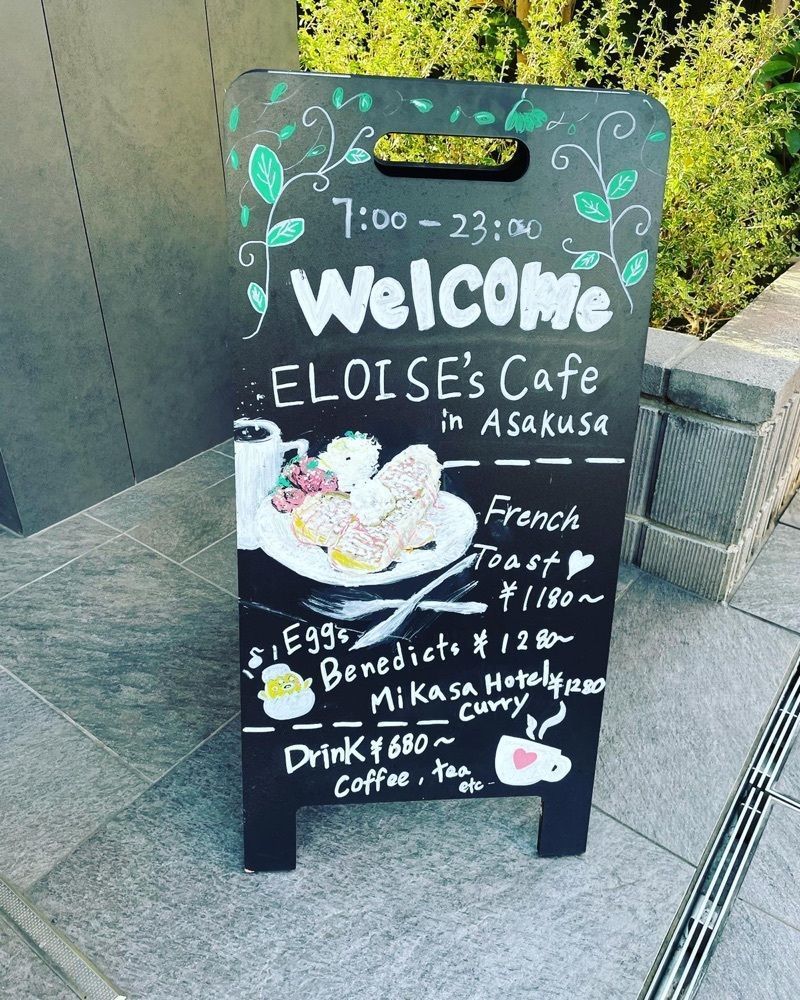 7:00-23:00
Welcome
ELOISE's Cafe
in Asakusa
French
Toast ♥
¥1180~
Eggs
Benedicts ¥1280~
Mikasa Hotel ¥1280
curry
Drink ¥680~
coffee, tea
etc-